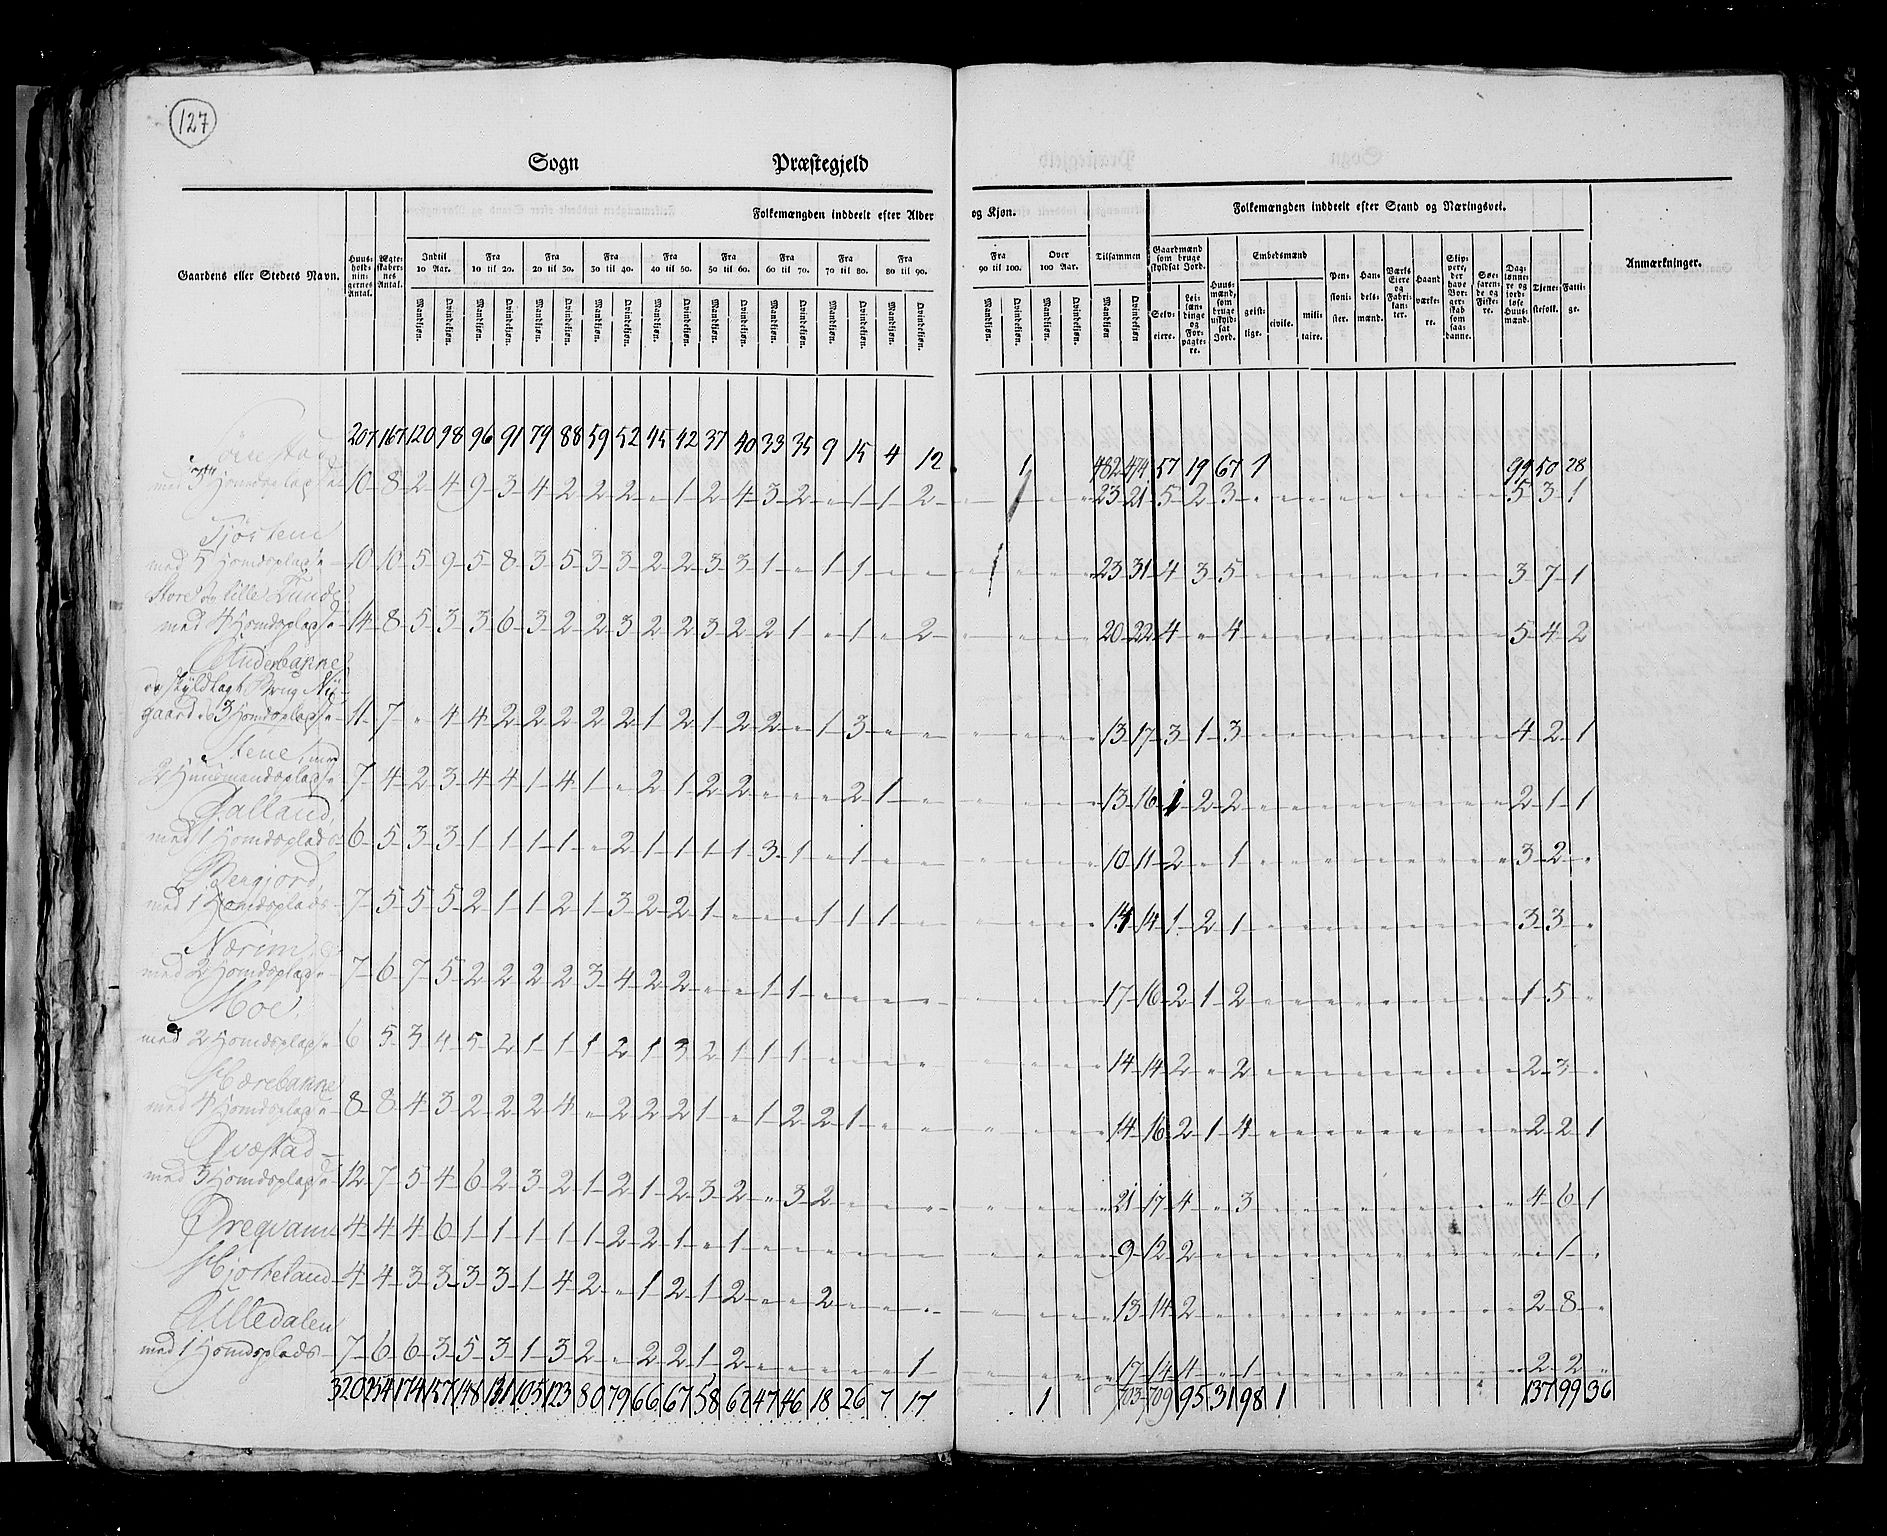 127
Sogn Præstegjeld
Folkemængden inddeelt efter Alder og Kjøn. Folkemængden inddeelt efter Stand og Næringsvei.
Gaardens eller Stedets Navn. Huus-holdnin-gernes Antal. Ægte-skaber-nes Antal. Indtil 10 Aar. Fra 10 til 20. Fra 20 til 30. Fra 30 til 40. Fra 40 til 50. Fra 50 til 60. Fra 60 til 70. Fra 70 til 80. Fra 80 til 90. Fra 90 til 100. Over 100 Aar. Tilsammen Gaardmænd som bruge skyldsat Jord. Huus-mænd, som bruge uskyld-sat Jord. Embedsmænd Pen-sioni-ster. Han-dels-mænd. Værks Eiere og Fabri-kan-ter. Haand værke-re. Slip-pere, der have Bor-ger-skab som saa-danne. Søe-faren-de og Fiske-re. Dag-lønne-re og jord-løse Huus-mænd. Tjene-stefolk. Fatti-ge. Anmærkninger.
Mandkjøn. Qvindekjøn. Mandkjøn. Qvindekjøn. Mandkjøn. Qvindekjøn. Mandkjøn. Qvindekjøn. Mandkjøn. Qvindekjøn. Mandkjøn. Qvindekjøn. Mandkjøn. Qvindekjøn. Mandkjøn. Qvindekjøn. Mandkjøn. Qvindekjøn. Mandkjøn. Qvindekjøn. Mandkjøn. Qvindekjøn. Mandkjøn Qvindekjøn Selv-eiere. Lei-læn-dinge og For-pagte-re. geist-lige. civile. mili-taire.
207 167 120 98 96 91 79 88 59 52 45 42 37 40 33 35 9 15 4 12 1 482 474 57 19 67 1 99 50 28
med 3 Huusmdspladse 10 8 2 4 9 3 4 2 2 2 " 1 2 4 3 2 " 1 1 2 23 21 5 2 3 5 3 1
Tjøstem
med 5 Huusmdspladse 10 10 5 9 5 8 3 5 3 3 2 2 3 3 1 " 1 1 23 31 4 3 5 3 7 1
Store og lille Tunde
med 4 Huusmdspladse 14 8 5 3 3 6 3 2 2 3 2 2 3 2 2 1 " 1 " 2 20 22 4 " 4 5 4 2
gaard 3 Huusmdspladse 11 7 " 4 4 2 2 2 2 2 1 2 1 2 2 " 1 3 13 17 3 1 3 4 2 1
Stene, med
2 Huusmandspladse 7 4 2 3 4 4 1 4 1 " 2 1 2 2 " " " 2 1 13 16 1 2 2 2 1 1
Dalland,
med 1 Huusmdsplads 6 5 3 3 1 1 1 1 " 2 1 1 1 1 3 1 " 1 10 11 2 " 1 3 2 "
Bergjord,
med 1 Huusmdsplads 7 5 5 5 2 1 1 2 1 3 2 2 1 " " " 1 1 1 14 14 1 2 1 3 3 "
Nærim,
med 2 Huusmdspladse 7 6 7 5 2 2 2 2 3 4 2 2 " " 1 1 17 16 2 1 2 1 5 "
Moe,
med 2 Huusmdspladse 6 5 3 4 5 2 1 1 1 2 1 3 2 1 1 1 14 14 2 " 2 2 3 "
Hærebakke
med 4 Huusmdspladse 8 8 4 3 2 2 2 4 " 2 2 2 1 " 1 2 2 1 14 16 2 1 4 2 2 1
Qvæstad
med 3 Huusmdspladse 12 7 5 4 6 2 3 2 1 2 1 2 3 2 " 3 2 21 17 4 " 3 4 6 1
Dreqvam 4 4 4 6 1 1 1 1 1 2 2 1 " 1 9 12 2 " 1 "
Hjorteland 4 4 3 3 3 3 1 4 2 " 1 2 1 2 " " 2 13 14 2 2 8 "
Ulledalen
med 1 Huusmdsplads 7 6 6 3 5 3 1 3 2 " 2 2 1 2 1 17 14 4 " 1 2 2 "
320 254 174 157 148 131 105 123 80 79 66 67 58 62 47 46 18 26 7 17 1 703 709 95 31 98 1 137 99 36